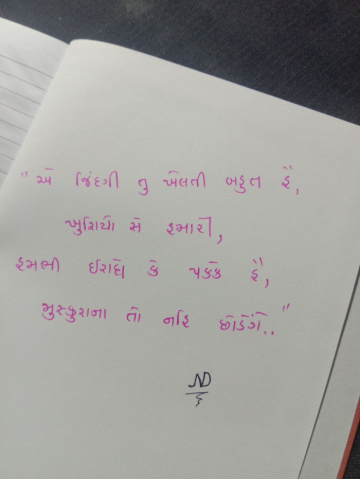 "એ જિંદગી તુ ખેલતી બહુત હૈ,
ખુશિયો સે હમારી,
હમભી ઈરાદે કે પક્કે હૈ,
મુસ્કુરાના તો નહિ છોડેંગે.."
ND